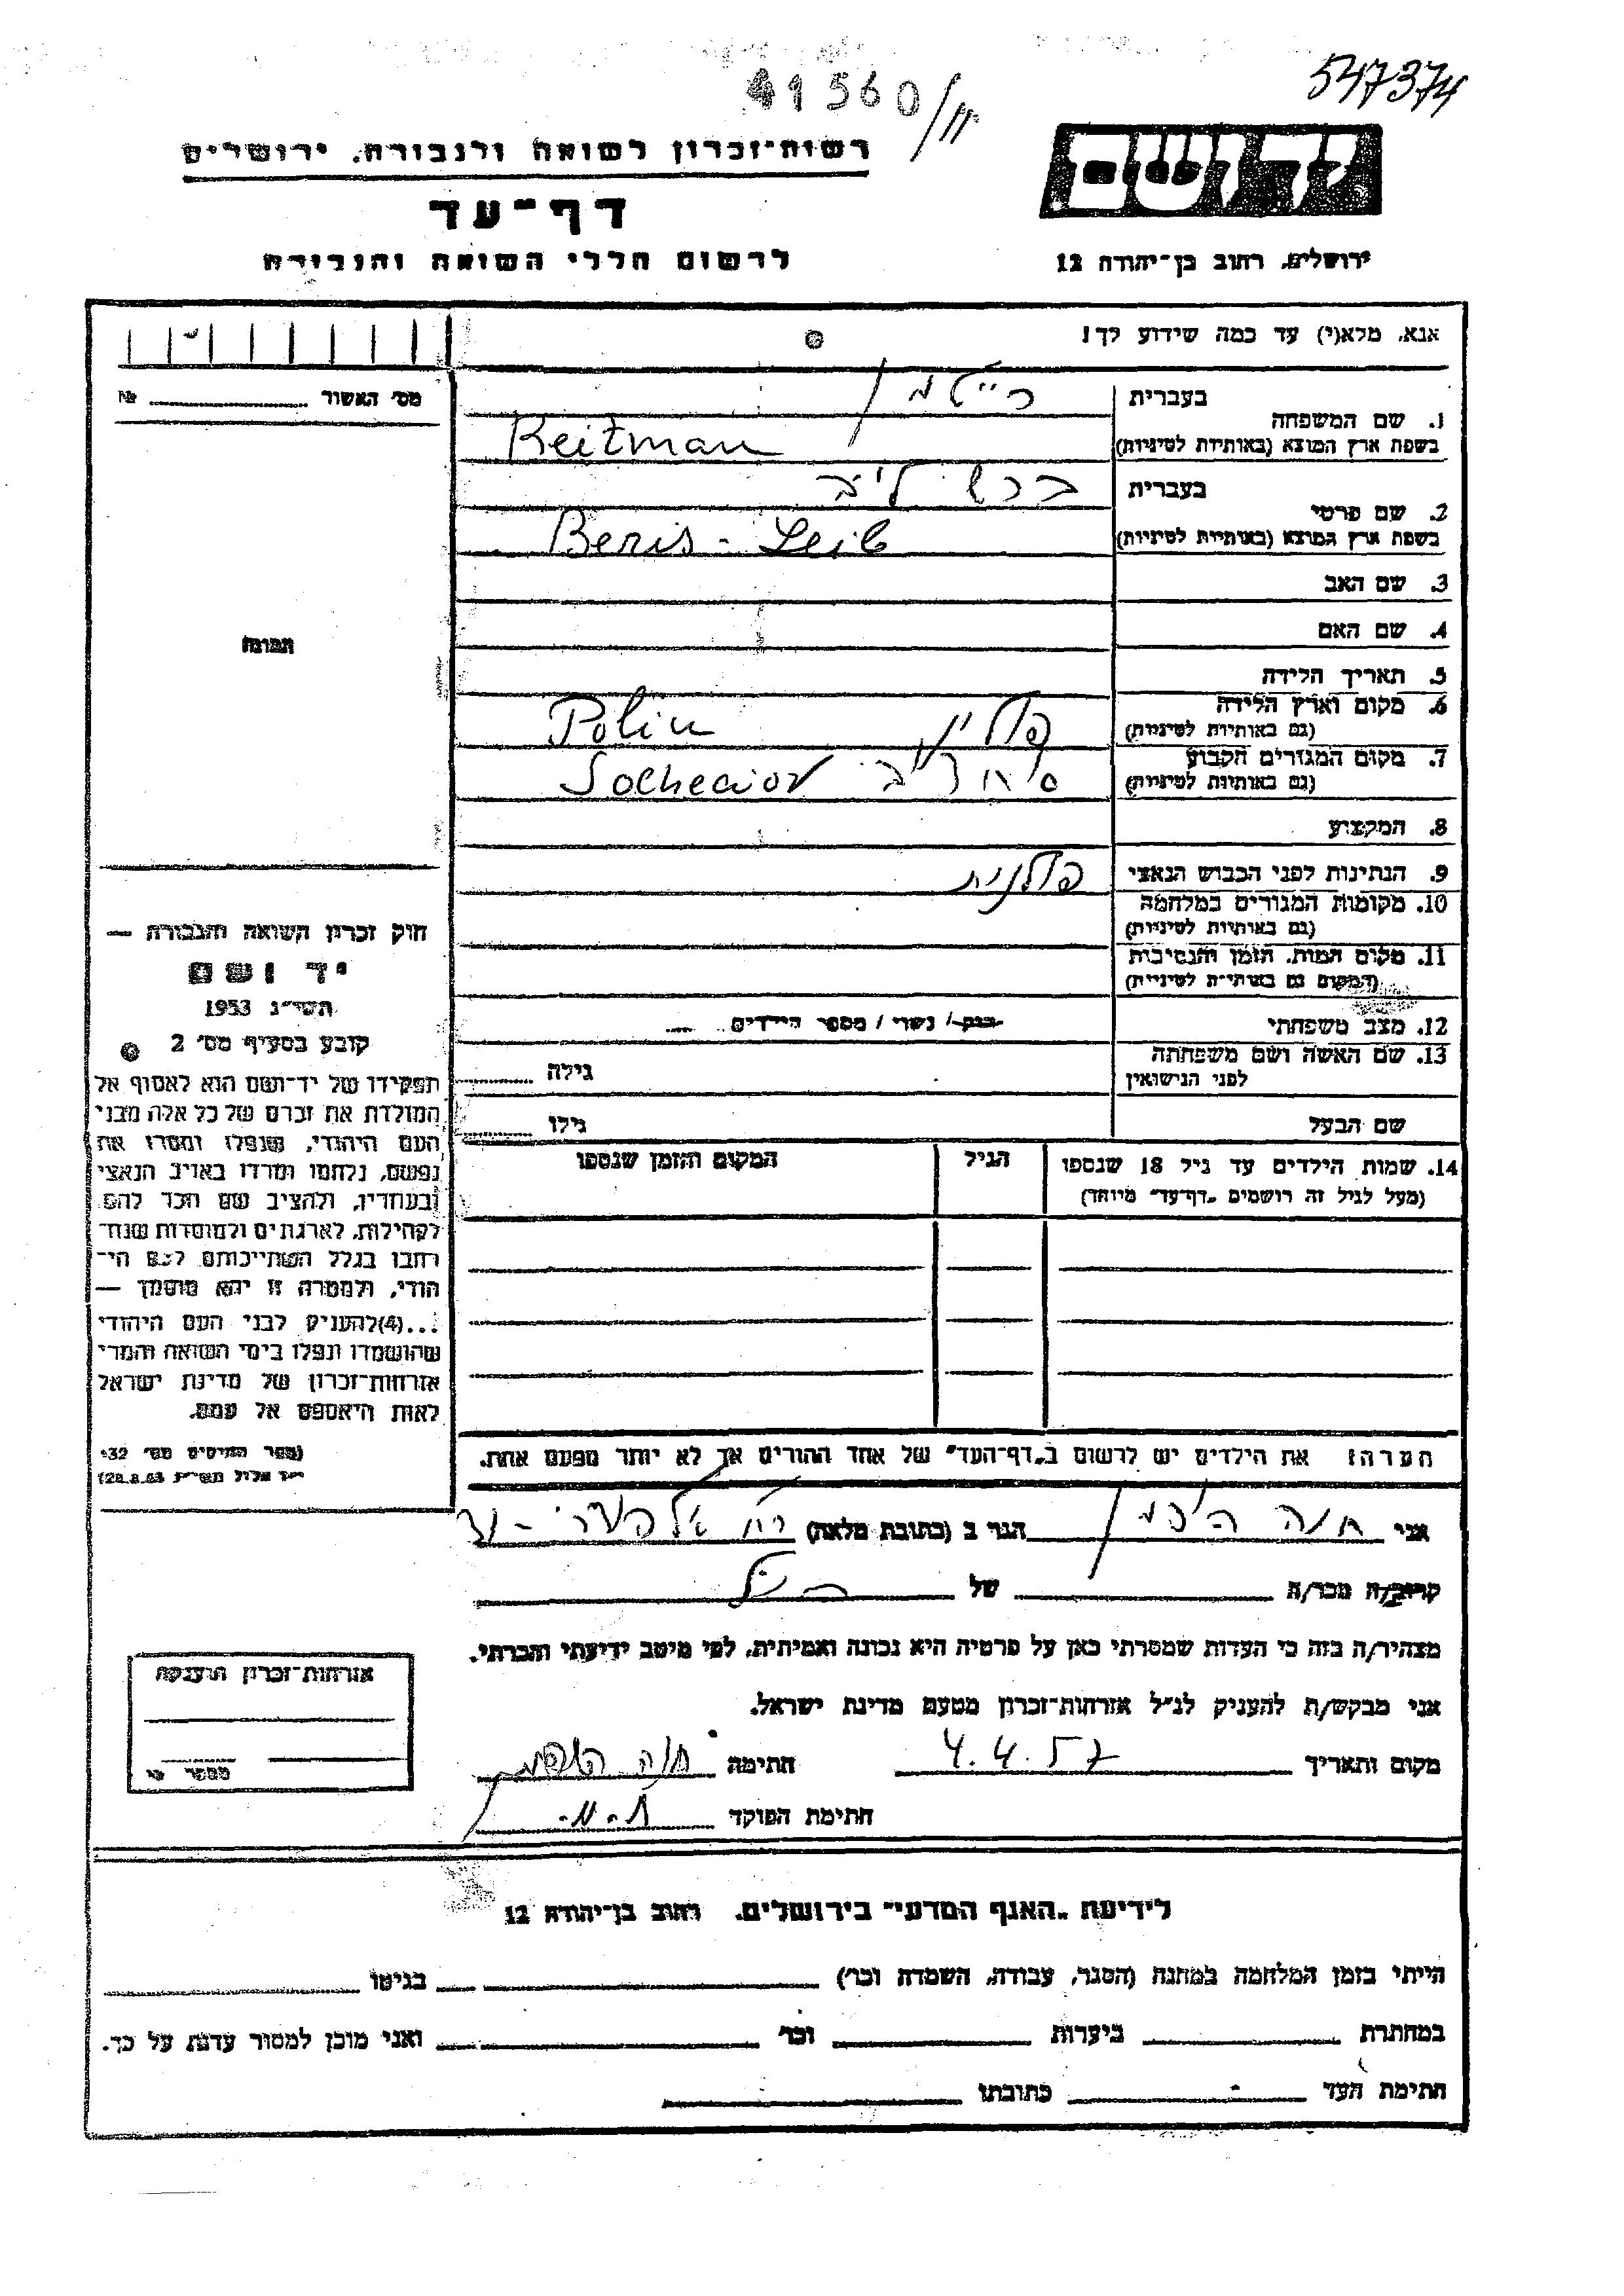 547374
41560/11
רשות־זכרון לשואה ולגבורה, ירושלים
יד ושם
דף־עד
לרשום חללי השואה והגבורה
ירושלים, רחוב בן־יהודה 12
אנא, מלא(י) עד כמה שידוע לך!
מס׳ האשור № 
1. שם המשפחה
בעברית רייטמן
בשפת ארץ המוצא (באותיות לטיניות) Reitman
2. שם פרטי
בעברית ברש ליב
בשפת ארץ המוצא (באותיות לטיניות) Beris - Leib
3. שם האב
4. שם האם
תמונה
5. תאריך הלידה
6. מקום וארץ הלידה פולין Polin
(גם באותיות לטיניות)
7. מקום המגורים הקבוע Sochecior
(גם באותיות לטיניות)
8. המקצוע
9. הנתינות לפני הכבוש הנאצי פולנית
10. מקומות המגורים במלחמה
(גם באותיות לטיניות)
11. מקום המות, הזמן והנסיבות
(המקום גם באותיות לטיניות)
12. מצב משפחתי רווק / נשוי / מספר הילדים
13. שם האשה ושם משפחתה גילה
לפני הנישואין
שם הבעל גילו
14. שמות הילדים עד גיל 18 שנספו הגיל המקום והזמן שנספו
(מעל לגיל זה רושמים „דף־עד״ מיוחד)
חוק זכרון השואה והגבורה —
יד ושם
תשי״ג 1953
קובע בסעיף מס׳ 2
תפקידו של יד־ושם הוא לאסוף אל
המולדת את זכרם של כל אלה מבני
העם היהודי, שנפלו ומסרו את
נפשם, נלחמו ומרדו באויב הנאצי
ובעוזריו, ולהציב שם וזכר להם
לקהילות, לארגונים ולמוסדות שנח־
רבו בגלל השתייכותם לעם הי־
הודי, ולמטרה זו יהא מוסמך —
...(4)להעניק לבני העם היהודי
שהושמדו ונפלו בימי השואה והמרי
אזרחות־זכרון של מדינת ישראל
לאות היאספם אל עמם.
(ספר החוקים מס׳ 132
28.8.53)
הערה: את הילדים יש לרשום ב„דף־העד״ של אחד ההורים אך לא יותר מפעם אחת.
אני חוה הגר ב (כתובת מלאה)
קרוב/ה מכר/ה של
מצהיר/ה בזה כי העדות שמסרתי כאן על פרטיה היא נכונה ואמיתית, לפי מיטב ידיעתי והכרתי.
אני מבקש/ת להעניק לנ״ל אזרחות־זכרון מטעם מדינת ישראל.
מקום ותאריך 4.4.57 חתימה חוה
חתימת הפוקד
אזרחות־זכרון הוענקה
מספר כי
לידיעת „האגף המדעי״ בירושלים, רחוב בן־יהודה 12
הייתי בזמן המלחמה במחנה (הסגר, עבודה, השמדה וכו׳) בגיטו
במחתרת ביערות וכו׳ ואני מוכן למסור עדות על כך.
חתימת העד כתובתו